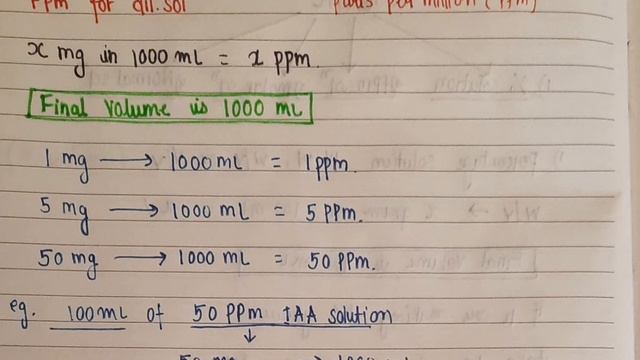 PPm for dil. sol parts per million (PPm)
x mg in 1000 mL = x ppm.
Final volume is 1000 mL
1 mg → 1000 mL = 1 ppm.
5 mg → 1000 mL = 5 PPm.
50 mg → 1000 mL = 50 PPm.
eg. 100 mL of 50 PPm IAA solution
↓